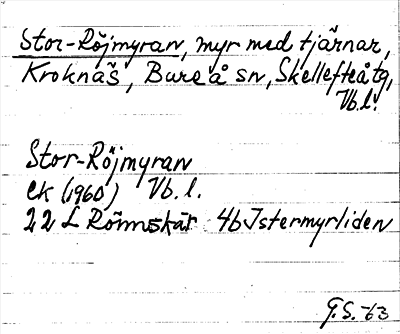 Stor-Röjmyran, myr med tjärnar,
Kroknäs, Bureå sn, Skellefteå tg,
Vb.l.
Stor-Röjmyran
ek (1960) Vb.l.
22 L Rönnskär 4b Istermyrliden
G.S. -63